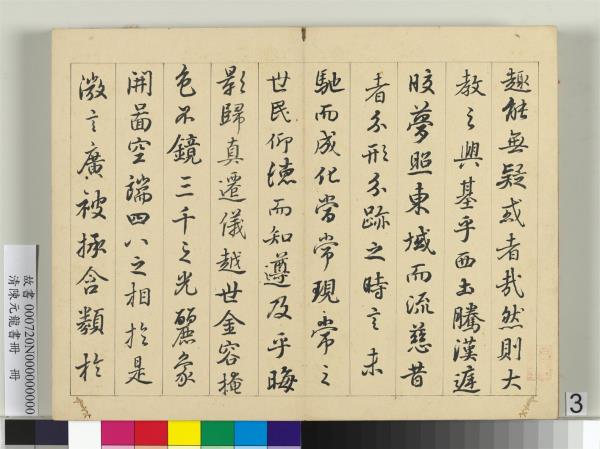 趣能無疑或者哉然則大
教之興基乎西土騰漢庭
皎夢照東域而流慈昔
者分形分跡之時言未
馳而成化當常現常之
世民仰德而知遵及乎晦
影歸真遷儀越世金容掩
色不鏡三千之光麗象
開圖空端四八之相於是
微言廣被拯含類於
故書 000720N000000000
清陳元龍書冊 冊
3